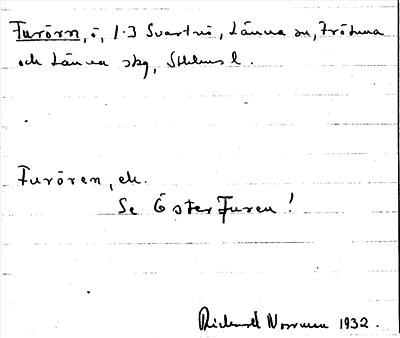 Furörn, ö, 1·3 Svartnö, Länna sn, Frötuna
och Länna skg, Sthlms l.
Furören, ek.
Se Öster Furen!
Rickard Norrman 1932.